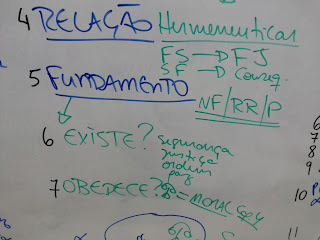 4 RELAÇÃO Hermeneuticas
FS → D FJ
SF → D Conseq.
5 FUNDAMENTO
NF/RR/P
6 EXISTE? segurança
justiça
ordem
paz
7 OBEDECE?
= MORAL
6
7
8
9
10